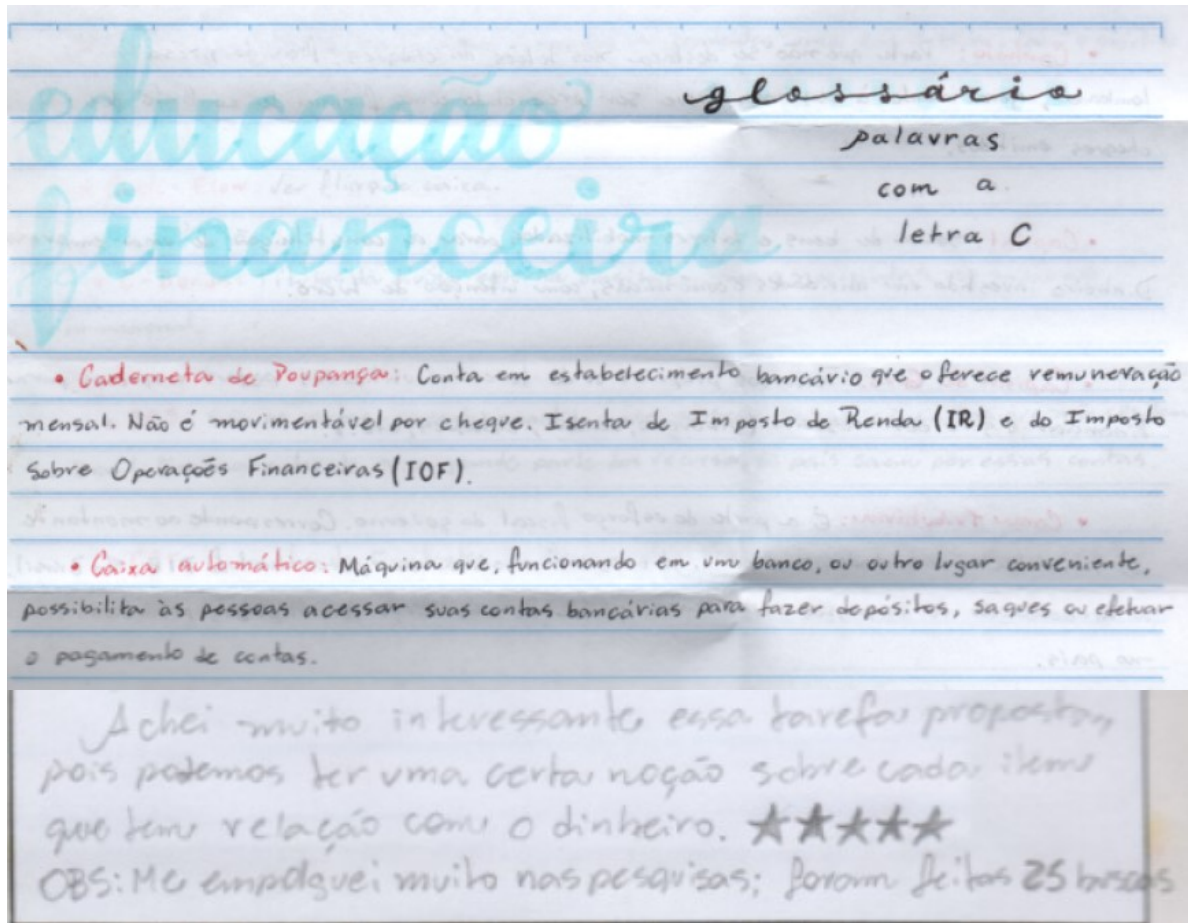 educação
financeira
glossário
palavras
com a
letra C
• Caderneta de Poupança: Conta em estabelecimento bancário que oferece remuneração
mensal. Não é movimentável por cheque. Isenta de Imposto de Renda (IR) e do Imposto
Sobre Operações Financeiras (IOF).
• Caixa automático: Máquina que, funcionando em um banco, ou outro lugar conveniente,
possibilita às pessoas acessar suas contas bancárias para fazer depósitos, saques ou efetuar
o pagamento de contas.
Achei muito interessante essa tarefa proposta,
pois podemos ter uma certa noção sobre cada item
que tem relação com o dinheiro. ★★★★★
OBS: Me empolguei muito nas pesquisas; foram feitas 25 buscas